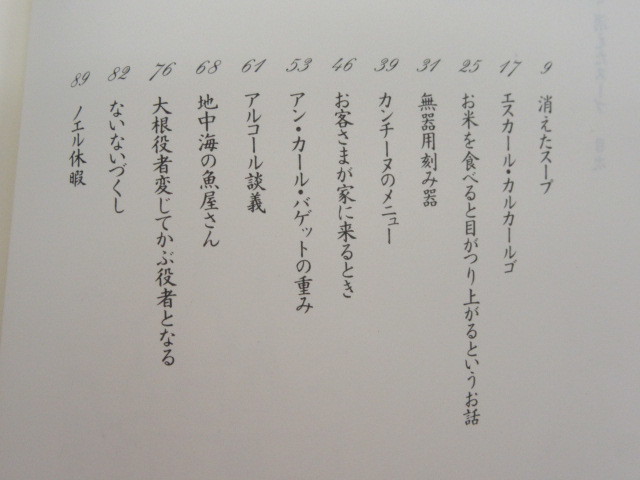 9 消えたスープ
17 エスカール・カルカールゴ
25 お米を食べると目がつり上がるというお話
31 無器用刻み器
39 カンチーヌのメニュー
46 お客さまが家に来るとき
53 アン・カール・バゲットの重み
61 アルコール談義
68 地中海の魚屋さん
76 大根役者変じてかぶ役者となる
82 ないないづくし
89 ノエル休暇